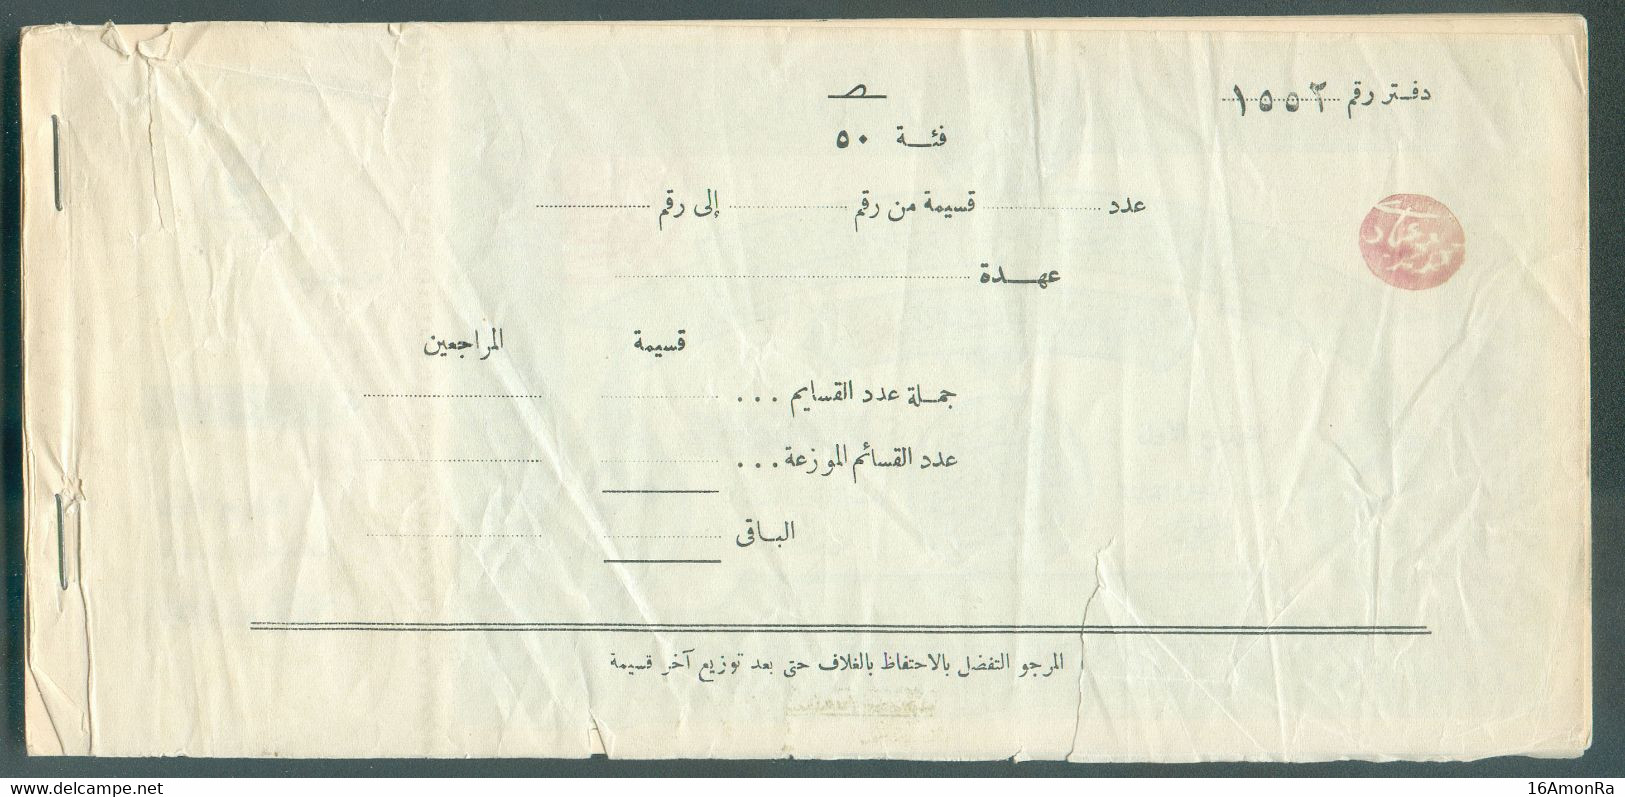 دفتر رقم ١٥٥٢
فئة ٥٠
عدد ........ قسيمة من رقم ........ إلى رقم ........
عهدة ........
قسيمة المراجعين
جملة عدد القسايم ...
عدد القسائم الموزعة ...
الباقى
المرجو التفضل بالاحتفاظ بالغلاف حتى بعد توزيع آخر قسيمة
www.delcampe.net
16AmonRa